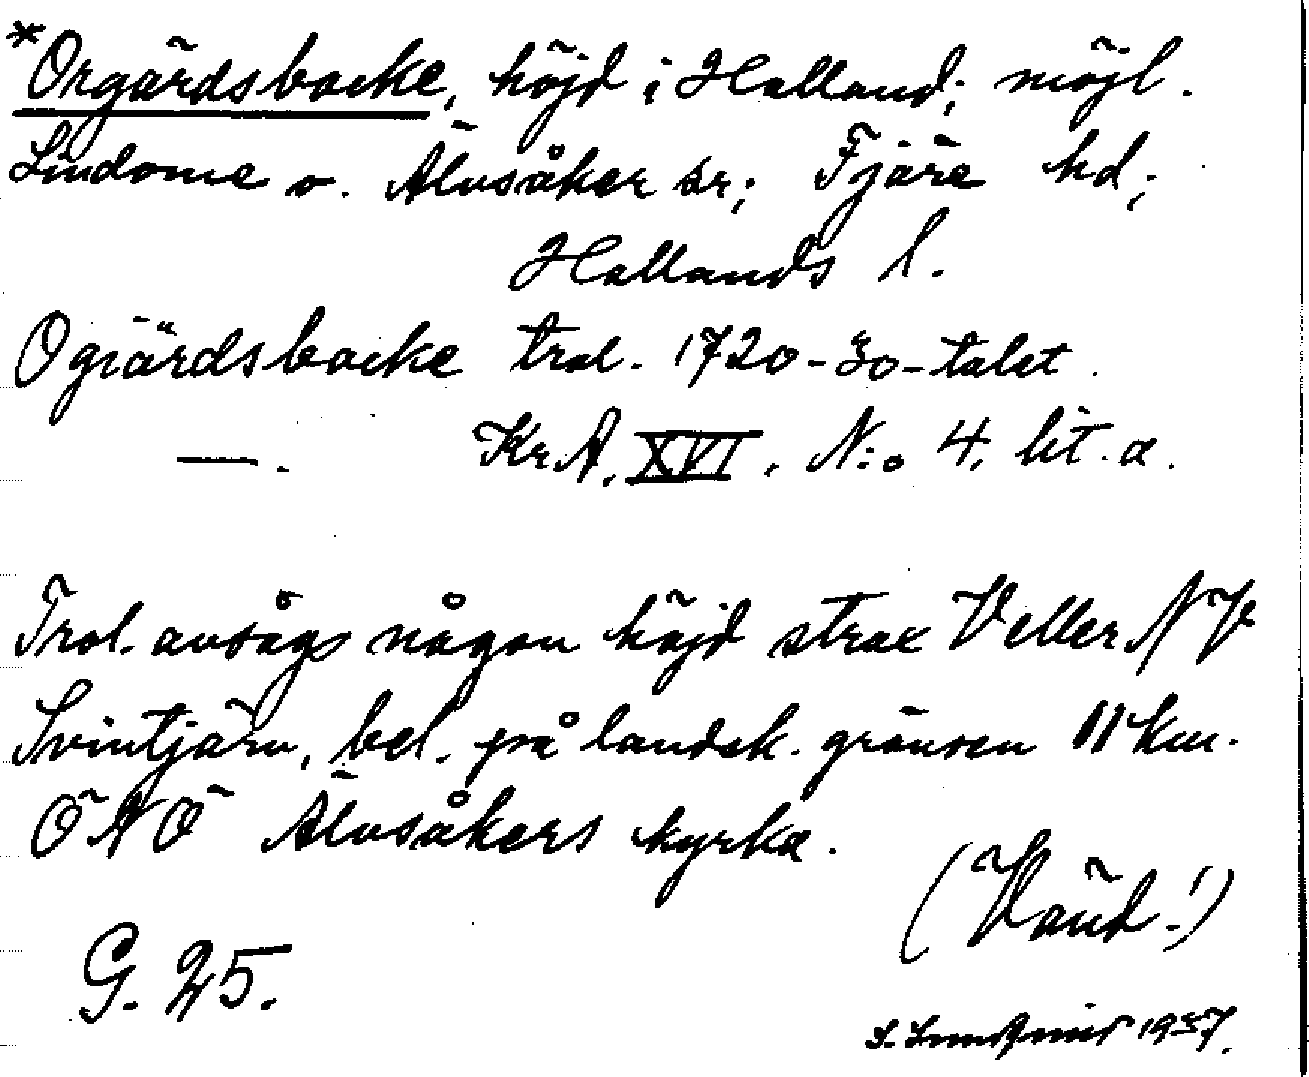 *Orgärdsbacke, höjd i Halland; möjl.
Lindome o. Älvsåker sr; Fjäre hd;
Hallands l.
Ogiärdsbacke trol. 1720-30-talet.
—. KrA. XVI. N:o 4. lit. a.
Trol. avsågs någon höjd strax V eller NV
Svintjärn, bel. på landsk. gränsen 11 km.
ÖNÖ Älvsåkers kyrka.
(Vänd!)
G. 25.
1937.